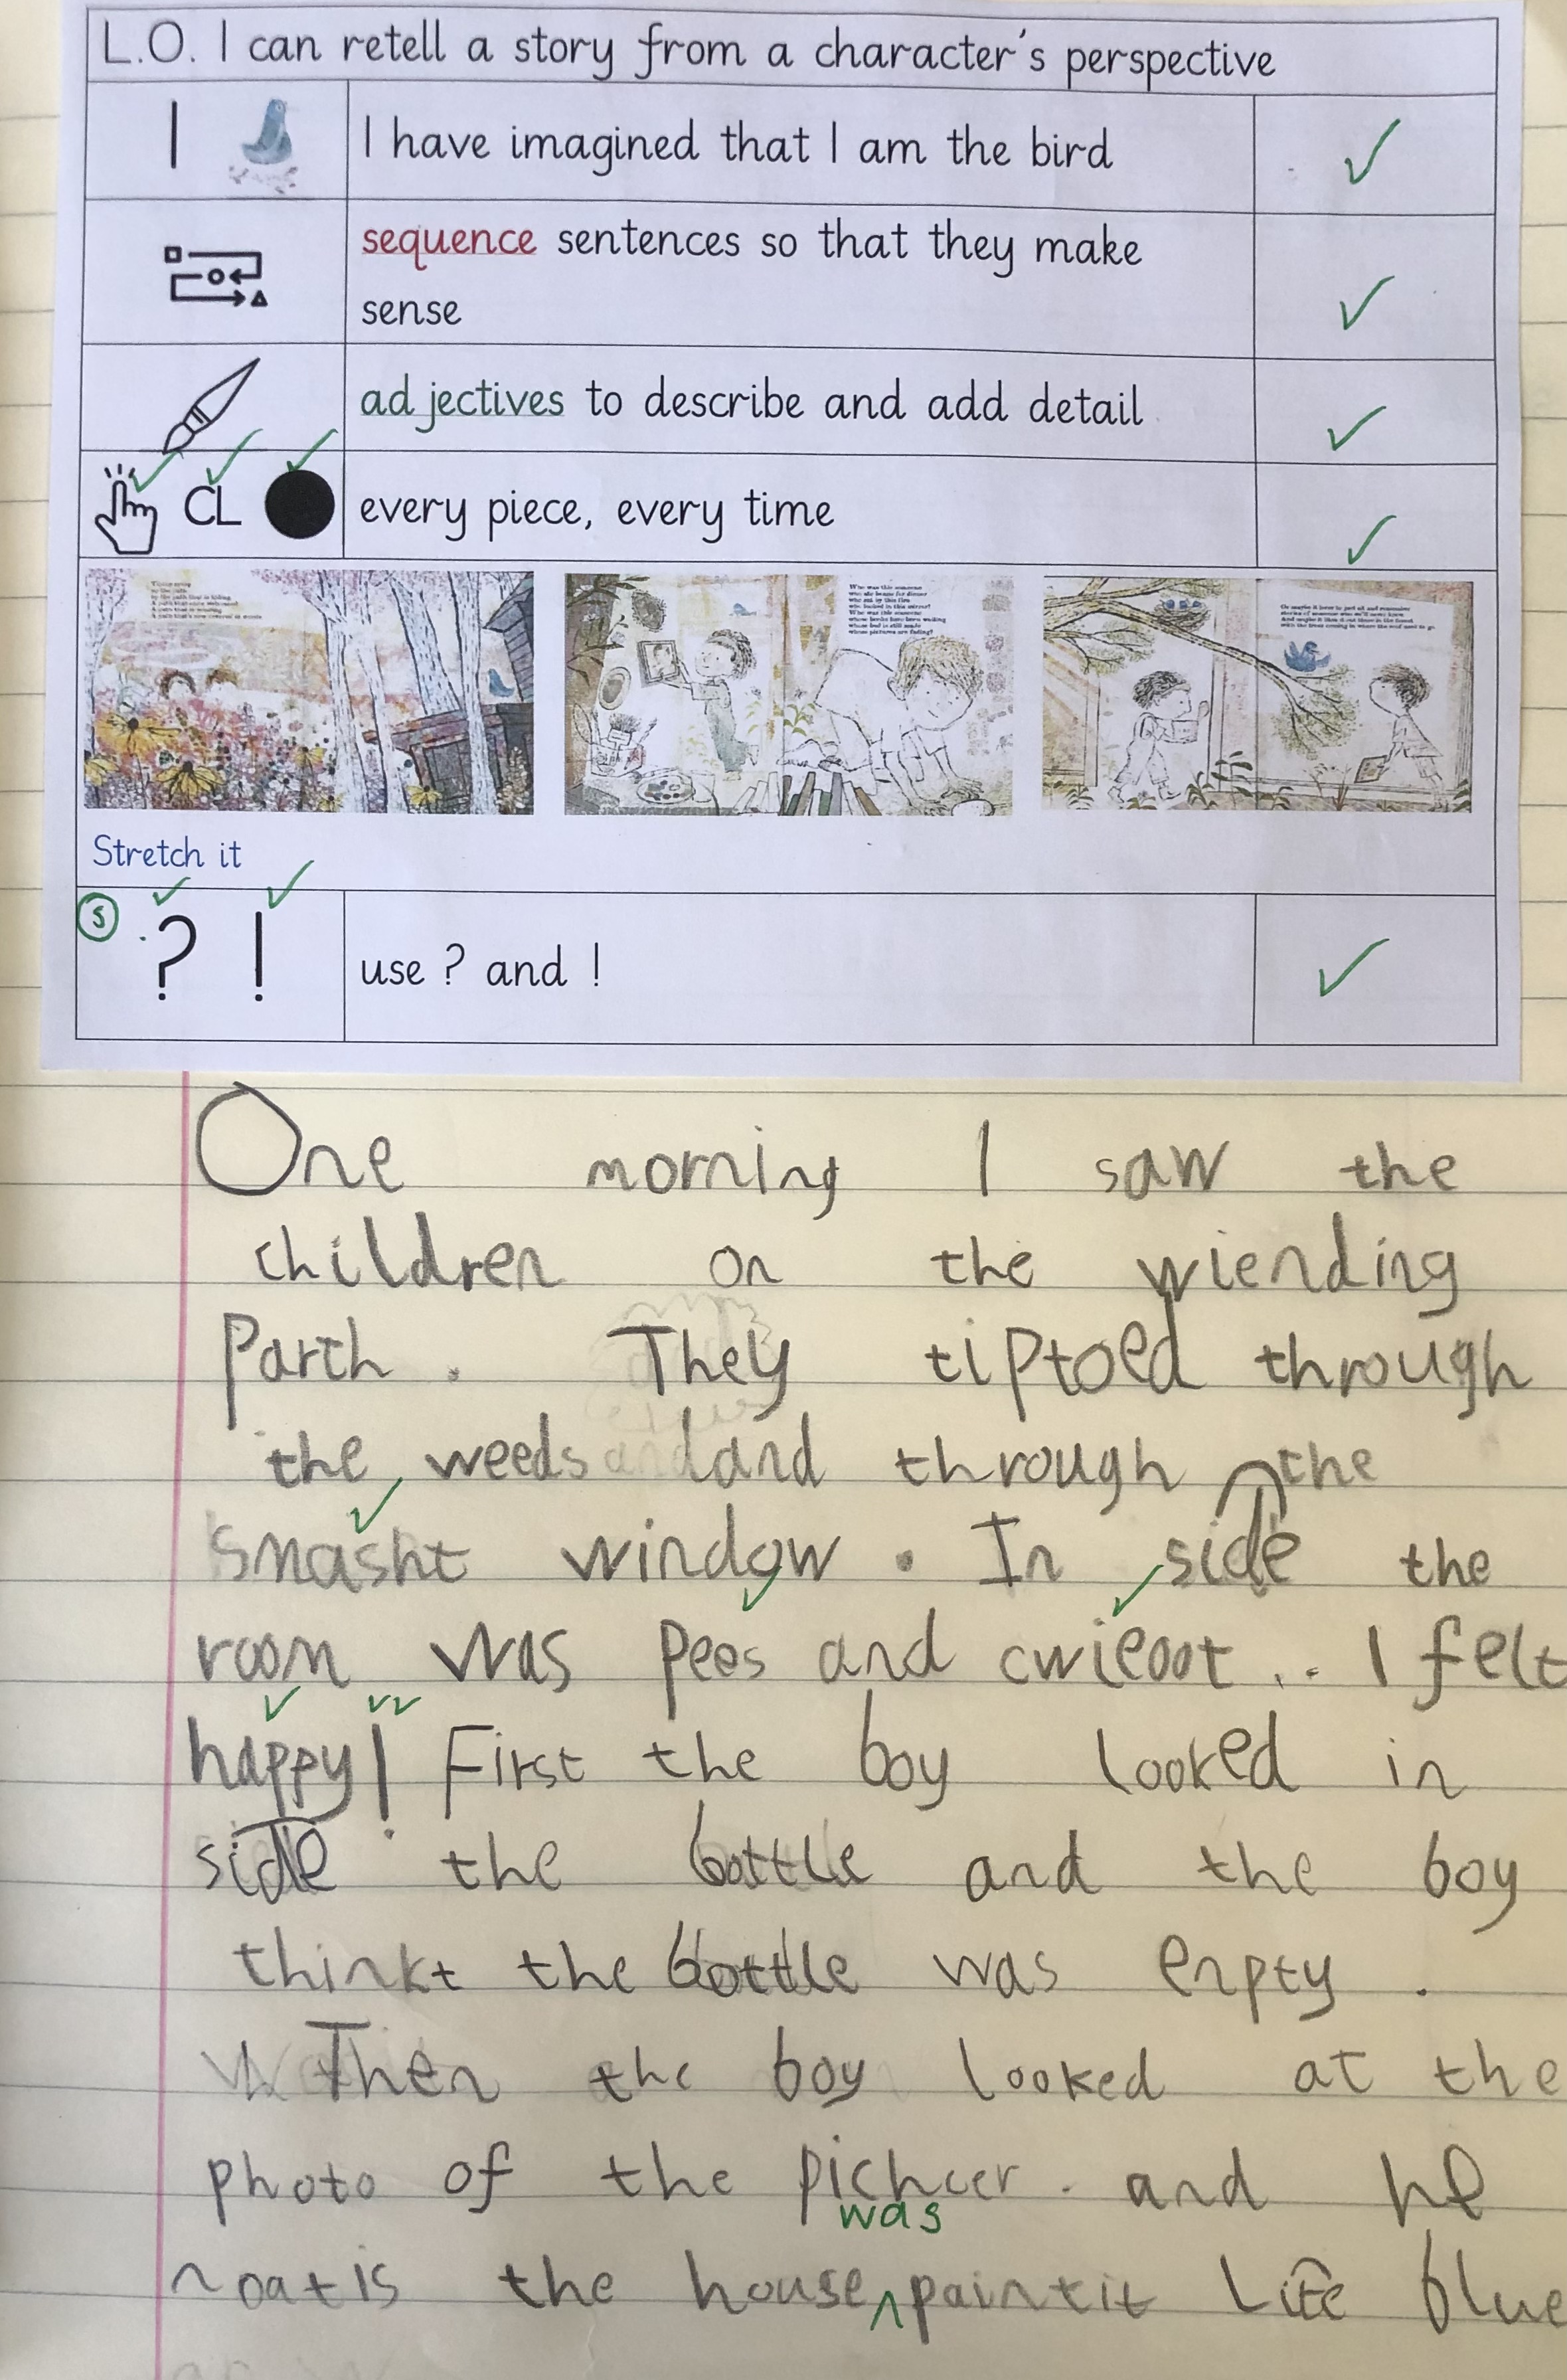 L.O. I can retell a story from a character's perspective
I
I have imagined that I am the bird
sequence sentences so that they make
sense
adjectives to describe and add detail
CL
every piece, every time
Stretch it
S
? !
use ? and !
One morning I saw the
children on the wiending
Parth. They tiptoed through
the weeds and through the
smasht window. In side the
room was pees and cwieoot... I felt
happy! First the boy looked in
side the bottle and the boy
thinkt the bottle was enpty.
Then the boy looked at the
photo of the pichuer. and he
was
noatis the house ^ paintit Lite blue